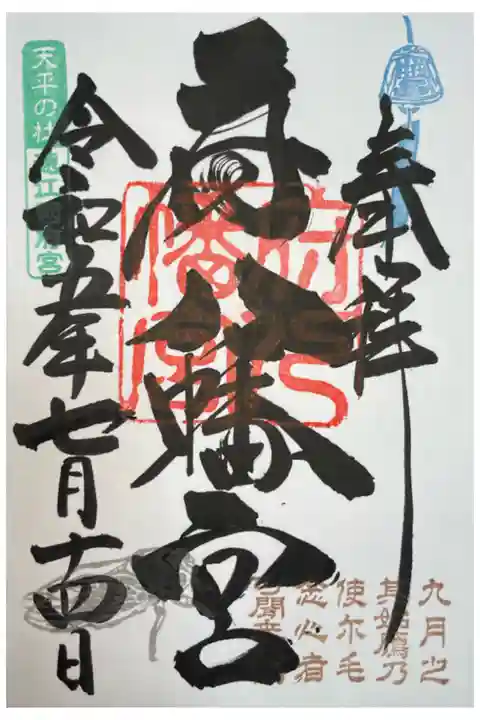 奉拝
府八幡宮
令和五年七月十四日
天平の杜
府八
幡宮
九月之
其始鴈乃
使尓毛
念心者